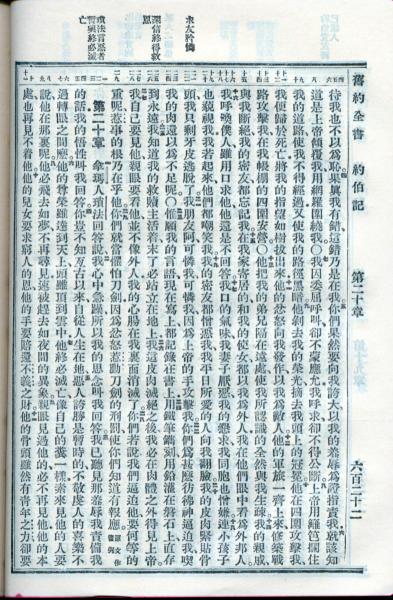 舊約全書　約伯記　第二十章　六百二十二
求友矜憫
深信終得救恩
瑣法言惡者暫興終必滅亡
待我也不以為恥果真我有錯這錯乃是在我你們果然要向我誇大以我的羞辱為證指責我就該知
道這是上帝傾覆我用網羅圍繞我○我因委屈呼叫卻不蒙應允我呼求卻不得公斷上帝用籬笆攔住
我的道路使我不得經過又使我的路徑黑暗他剝去我的榮光摘去我頭上的冠冕他在四圍攻擊我
我便歸於死亡將我的指望如樹拔出來他的忿怒向我發作以我為敵人他的軍旅一齊上來修築戰
路攻擊我在我帳棚的四圍安營○他把我的弟兄隔在遠處使我所認識的全然與我生疎我的親戚
與我斷絕我的密友都忘記我在我家寄居的和我的使女都以我為外人我在他們眼中看為外邦人
我呼喚僕人雖用口求他他還是不回答我口的氣味我妻子厭惡我的懇求我同胞也憎嫌連小孩子
也藐視我我若起來他們都嘲笑我我的密友都憎惡我我平日所愛的人向我翻臉我的皮肉緊貼骨
頭我只剩牙皮逃脫了我朋友阿可憐我可憐我因為上帝的手攻擊我你們為甚麼彷彿神逼迫我喫
我的肉還以為不足呢○惟願我的言語現在寫上都記錄在書上用鐵筆鐫刻用鉛灌在磐石上直存
到永遠我知道我的救贖主活着末了必站立在地上我這皮肉滅絕之後我必在肉體之外得見上帝
我自己要見他親眼要看他並不像外人我的心腸在我裏面消滅了你們若說我們逼迫他要何等的
重呢惹事的根乃在乎他你們就當懼怕刀劍因為忿怒惹動刀劍的刑罰使你們知道有報應
第二十章　拿瑪人瑣法回答說我心中急躁所以我的思念叫我回答我已聽見那羞辱我責備我
的話我的悟性叫我回答你豈不知亙古以來自從人生在地惡人誇勝是暫時的不敬虔人的喜樂不
過轉眼之間麼他的尊榮雖達到天上頭雖頂到雲中他終必滅亡像自己的糞一樣素來見他的人要
說他在那裏呢他必飛去如夢不再尋見速被趕去如夜間的異象親眼見過他的必不再見他他的本
處也再見不着他他的兒女要求窮人的恩他的手要賠還不義之財他的骨頭雖然有青年之力卻要